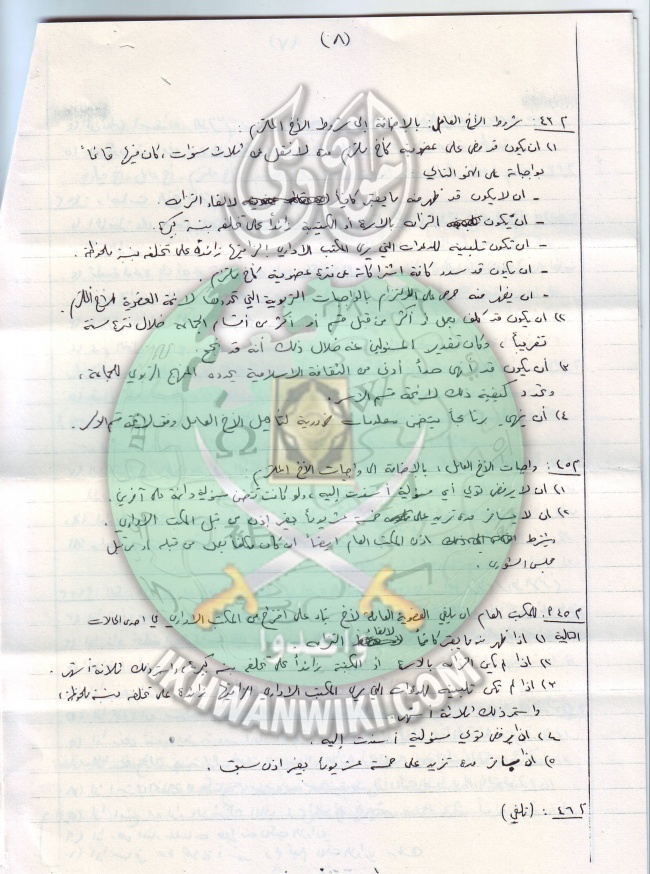 (٨)
م٤٢: شروط الأخ العامل: بالإضافة الى شروط الأخ الملتزم:
١) ان يكون قد مضى على عضويته كأخ ملتزم مدة لا تقل عن ثلاث سنوات، كان فيها قائماً
بواجباته على النحو التالي:
- ان لا يكون قد ظهر منه ما يعتبر كافياً لإلغاء التزامه.
- ان يكون التزامه بالأسرة أو الكتيبة زائداً على تخلفه بنسبة كبيرة.
- ان تكون تلبيته للدعوات التي يرى المكتب الاداري الزاميتها زائدة على تخلفه بنسبة ملحوظة.
- ان يكون قد سدد كافة اشتراكاته عن فترة عضويته كأخ ملتزم.
- ان يظهر منه حرص على الإلتزام بالواجبات التربوية التي تحددها لائحة العضوية للأخ الملتزم.
٢) ان يكون قد كلف بعمل أو أكثر من قبل قسم أو أكثر من أقسام الجماعة خلال فترة سنة
تقريباً، وكان تقدير المسؤولين عنه خلال ذلك أنه قد نجح.
٣) أن يكون قد أنهى حداً أدنى من الثقافة الاسلامية يحدده المنهج التربوي للجماعة،
وتحدد كيفية ذلك لائحة قسم الأسر.
٤) أن ينهي برنامجاً يتضمن معلومات ضرورية لتأهيل الأخ العامل وفق لائحة قسم الأسر.
واجبات الأخ العامل: بالإضافة الى واجبات الأخ الملتزم:
١) ان لا يرفض تولي أي مسؤولية أسندت إليه، ولو كانت تتضمن مسؤولية دائمة
٢) ان لا يسافر مدة تزيد على خمسة عشر يوماً بغير إذن من قبل المكتب الاداري.
ويشترط اذن المكتب العام ايضاً ان كان مكلفاً بعمل من قبله أو من قبل
مجلس الشورى.
للمكتب العام ان يلغي العضوية العاملة لأخ بناء على اقتراح من المكتب الاداري في احدى الحالات
التالية: ١) اذا ظهر منه ما يعتبر كافياً لالغاء التزامه.
٢) اذا لم يكن التزامه بالأسرة أو الكتيبة زائداً على تخلفه بنسبة كبيرة واستمر ذلك ثلاثة أشهر.
٣) اذا لم تكن تلبيته للدعوات التي يرى المكتب الاداري الزاميتها زائدة على تخلفه بنسبة ملحوظة،
واستمر ذلك ثلاثة أشهر.
٤) ان يرفض تولي مسؤولية أسندت إليه.
٥) ان يسافر مدة تزيد على خمسة عشر يوماً بغير اذن مسبق.
م٤٦: (تلغى)
IKHWANWIKI.COM
وأعدوا